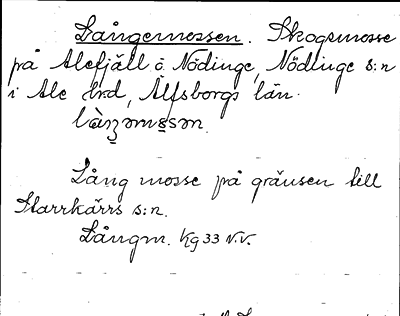 Långemossen. Skogsmosse
på Alefjäll ö Nödinge, Nödinge s:n
i Ale hrd, Älfsborgs län.
Lång mosse på gränsen till
Starrkärrs s:n.
Långm. Kg 33 N.V.